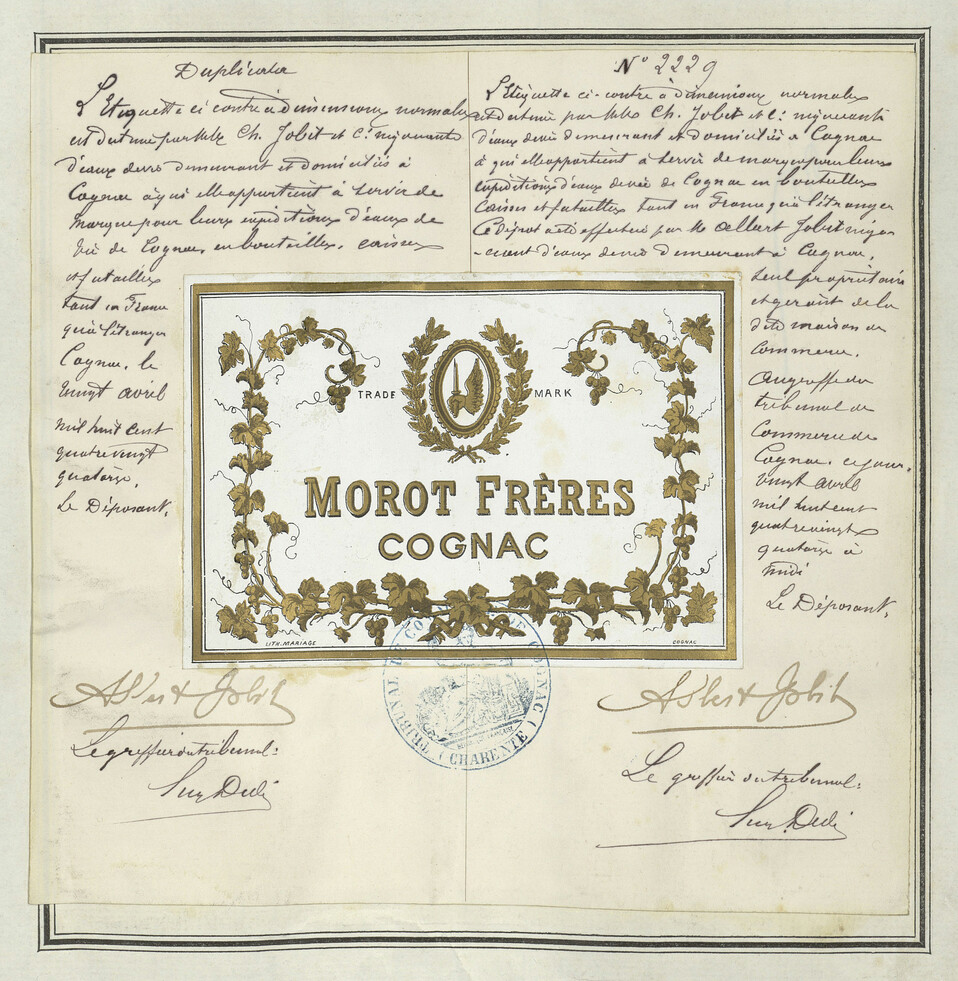 Duplicata
L'Etiquette ci contre à dimensions normales
est destinée par MM. Ch. Jobit et Cie négociants
d'eaux de vie demeurant et domiciliés à
Cognac à qui elle appartient à servir de
marque pour leurs expéditions d'eaux de
vie de Cognac en bouteilles, caisses
et futailles
tant en France
qu'à l'étranger
Cognac, le
vingt avril
mil huit cent
quatre vingt
quatorze.
Le Déposant,
Albert Jobit
Le greffier du tribunal:
No 2229
L'Etiquette ci-contre à dimensions normales
est destinée par MM. Ch. Jobit et Cie négociants
d'eaux de vie demeurant et domiciliés à Cognac
à qui elle appartient à servir de marque pour leurs
expéditions d'eaux de vie de Cognac en bouteilles
caisses et futailles tant en France qu'à l'étranger
Ce dépôt a été effectué par M. Albert Jobit négo-
-ciant d'eaux de vie demeurant à Cognac,
seul propriétaire
et gérant de la
dite maison de
commerce.
Au greffe du
tribunal de
Commerce de
Cognac, ce jour,
vingt avril
mil huit cent
quatre vingt
quatorze à
midi
Le Déposant,
Albert Jobit
Le greffier du tribunal:
TRADE MARK
MOROT FRÈRES
COGNAC
LITH. MARIAGE COGNAC
TRIBUNAL DE COMMERCE DE COGNAC (CHARENTE)